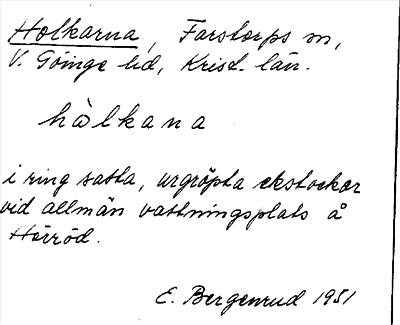 Holkarna, Farstorps sn,
V. Göinge hd, Krist. län.
hålkana
i ring satta, urgröpta ekstockar
vid allmän vattningsplats å
Hörröd.
E. Bergenrud 1951